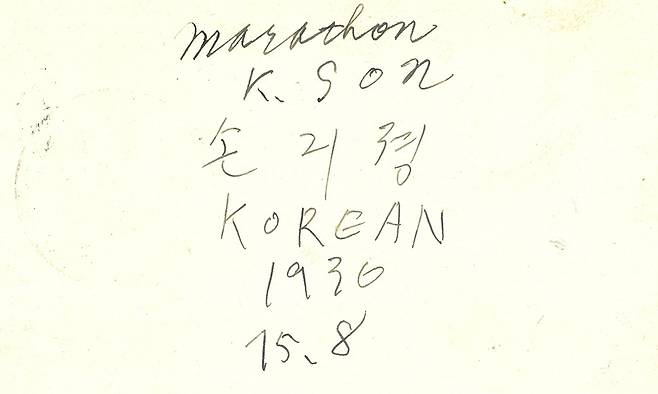 marathon
K. SON
손긔졍
KOREAN
1936
15.8